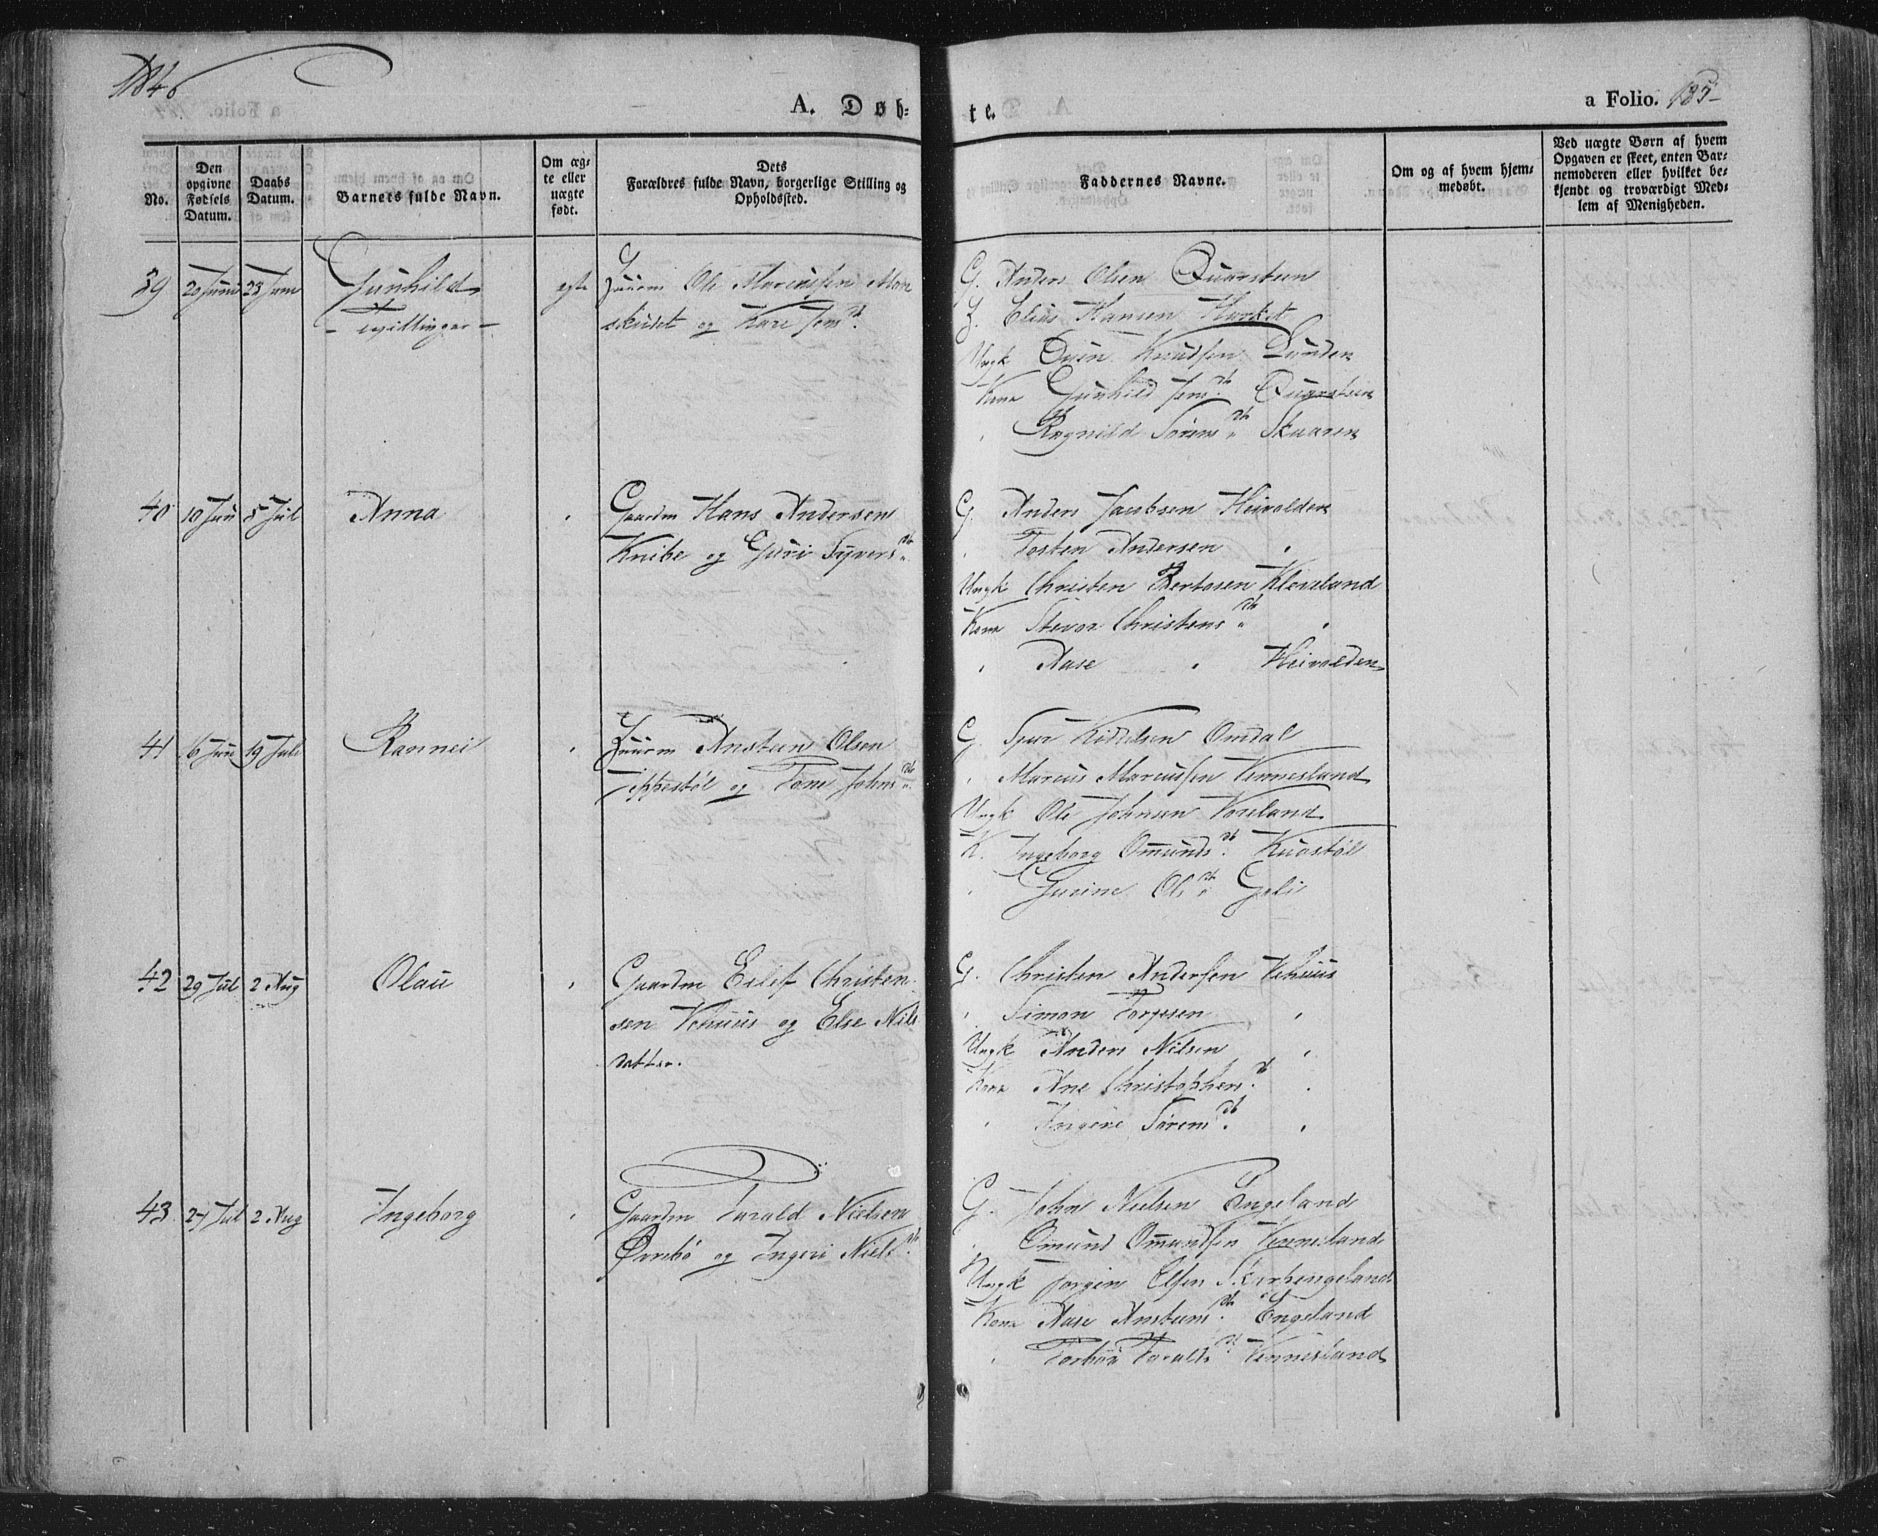 1846
A. Døb-
te.
a Folio. 185
No.
Den opgivne Fødsels Datum.
Daabs Datum.
Barnets fulde Navn.
Om æg-
te eller
uægte
født.
Dets
Forældres fulde Navn, borgerlige Stilling og
Opholdssted.
Faddernes Navne.
Om og af hvem hjem-
medøbt.
Ved uægte Børn af hvem
Opgaven er skeet, enten Bar-
nemoderen eller hvilket be-
kjendt og troværdigt Med-
lem af Menigheden.
39 20 Juni 23 Juni Gunhild
- tvillinger -
ægte
Ole Marcussen
skudet og Kari Jens dt.
G. Anders Olsen Quarsteen
Elias Hansen
Ungk Knudsen Lunden
Kone Gunhild Jens dt. Quarsteen
Ragnild Sørens dt. Skaaren
40 10 Juni 5 Jul Anna "
Gaardm Hans Andersen
Knibe og Guri Syvers dt.
G. Anders Jacobsen Heivolden
" Tosten Andersen "
Ungk Christen Kleveland
Kone Christens dt. "
" Aase " Heivolden
41 6 Juni 19 Juli Rannei "
Ansteen Olsen
og Tone Johns dt.
G. Omdal
" Marcus Marcussen Vennesland
Ungk Ole Johnsen
K. Ingeborg Omunds dt.
" Gurine Ols dt.
42 29 Jul 2 Aug Olau "
Gaardm Eilif Christen-
sen Vehuus og Else Nils
datter.
G. Christen Andersen Vehuus
" Simon Torjesen "
Ungk Anders Nilsen "
Kone Ane Christophers dt. "
" Ingine Sørens dt. "
43 27 Jul 2 Aug Ingeborg "
Gaardm Tarald Nielsen
og Ingeri Niels dt.
G. John Nielsen Engeland
" Omund Omundsen Vennesland
Ungk Jørgen Olsen Skarpengeland
Kone Aase Ansteens dt. Engeland
" Taralds dt. Vennesland